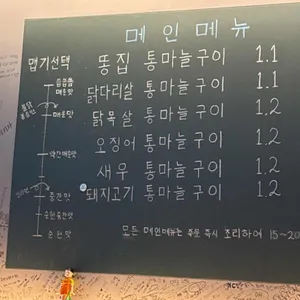 메인메뉴
맵기선택
똥집 통마늘구이 1.1
닭다리살 통마늘구이 1.1
닭목살 통마늘구이 1.2
오징어 통마늘구이 1.2
새우 통마늘구이 1.2
돼지고기 통마늘구이 1.2
매운맛
매운맛
약간매운맛
중간맛
순한중간맛
순한맛
모든 메인메뉴는 주문 즉시 조리하여 15~20